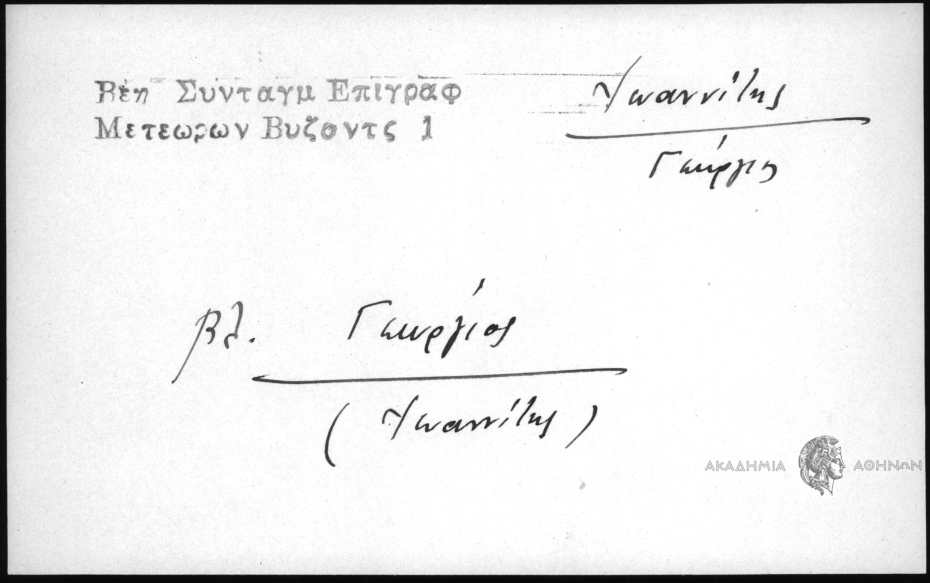 Βέη Συνταγμ Επιγραφ
Μετεωρων Βυζοντς 1
Ἰωαννίτης
Γεώργιος
βλ. Γεώργιος
(Ἰωαννίτης)
ΑΚΑΔΗΜΙΑ ΑΘΗΝΩΝ